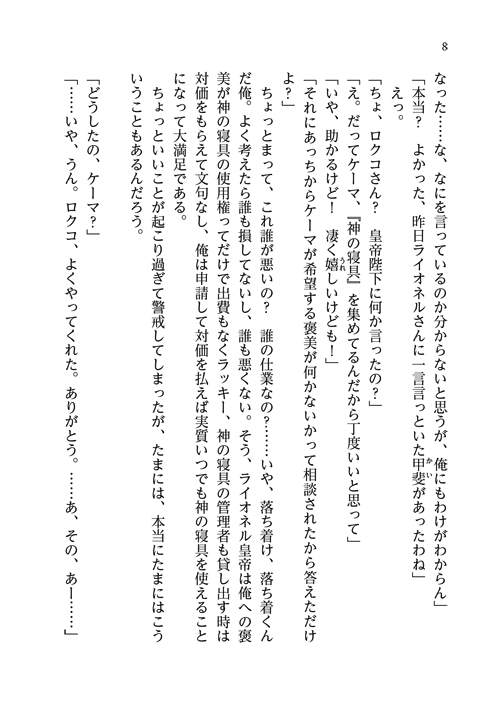 8
なった……な、なにを言っているのか分からないと思うが、俺にもわけがわからん」
「本当？　よかった、昨日ライオネルさんに一言言っといた甲斐があったわね」
えっ。
「ちょ、ロクコさん？　皇帝陛下に何か言ったの？」
「え。だってケーマ、『神の寝具』を集めてるんだから丁度いいと思って」
「いや、助かるけど！　凄く嬉しいけども！」
「それにあっちからケーマが希望する褒美が何かないかって相談されたから答えただけ
よ？」
ちょっとまって、これ誰が悪いの？　誰の仕業なの？……いや、落ち着け、落ち着くん
だ俺。よく考えたら誰も損してないし、誰も悪くない。そう、ライオネル皇帝は俺への褒
美が神の寝具の使用権ってだけで出費もなくラッキー、神の寝具の管理者も貸し出す時は
対価をもらえて文句なし、俺は申請して対価を払えば実質いつでも神の寝具を使えること
になって大満足である。
ちょっといいことが起こり過ぎて警戒してしまったが、たまには、本当にたまにはこう
いうこともあるんだろう。
「どうしたの、ケーマ？」
「……いや、うん。ロクコ、よくやってくれた。ありがとう。……あ、その、あー……」